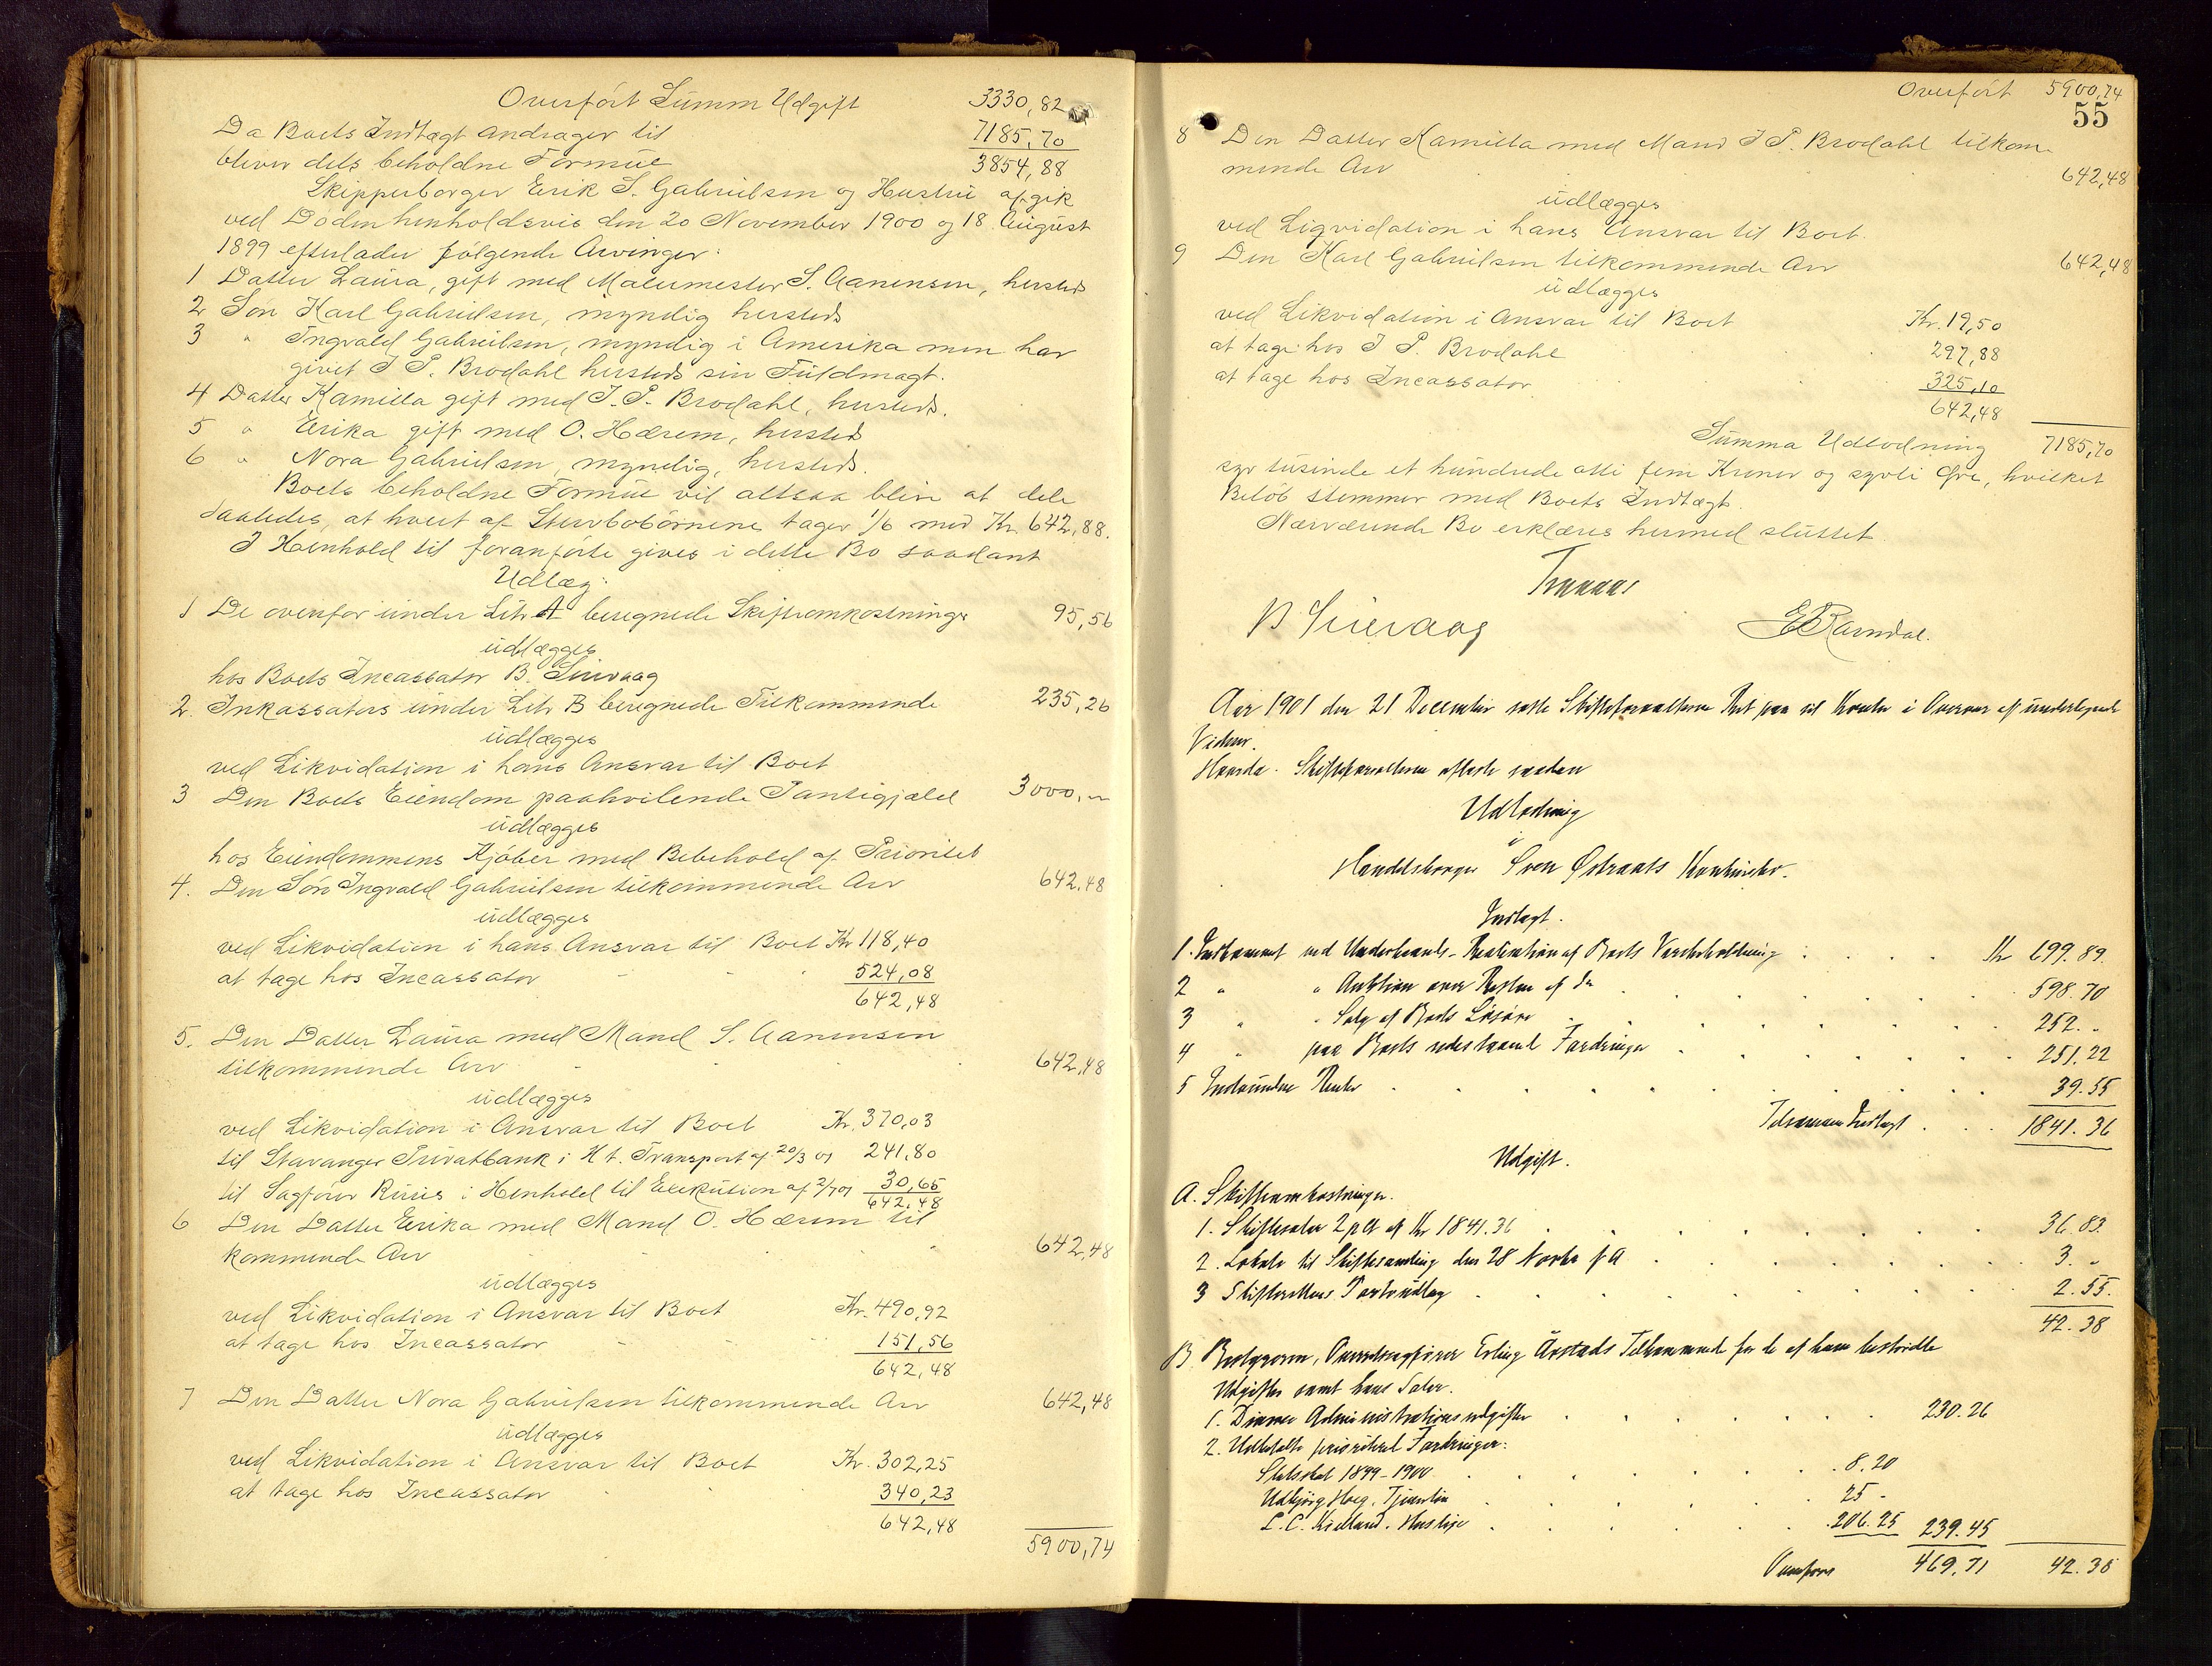 Overført Summ Udgift 3330,82
Da Boets Indtægt andrager til 7185,70
bliver dets beholdne Formue 3854,88
Skipperborger Erik S. Gabrielsen og Hustru afgik
ved Døden henholdsvis den 20 November 1900 og 18 August
1899 efterlader følgende Arvinger:
1 Datter Laura, gift med Malermester S. Aanensen, hersteds
2 Søn Karl Gabrielsen, myndig hersteds
3 " Ingvald Gabrielsen, myndig i Amerika men har
givet I P. Brodahl hersteds sin Fuldmagt.
4 Datter Kamilla gift med I. P. Brodahl, hersteds.
5 " Erika gift med O. Hærem, hersteds
6 " Nora Gabrielsen, myndig, hersteds.
Boets beholdne Formue vil altsaa blive at dele
saaledes, at hvert af Stervbobørnene tager 1/6 med Kr. 642,88.
I Henhold til foranførte gives i dette Bo saadant
Udlæg:
1 De ovenfor under Litr A beregnede Skifteomkostninger 95,56
udlægges
hos Boets Incassator B. Survaag
2. Inkassators under Litr B beregnede Tilkommende 235,26
udlægges
ved Likvidation i hans Ansvar til Boet
3 Den Boets Eiendom paahvilende Pantegjæld 3000,-
udlægges
hos Eiendommens Kjøber med Bibehold af Prioritet
4. Den Søn Ingvald Gabrielsen tilkommende Arv 642,48
udlægges
ved Likvidation i hans Ansvar til Boet Kr 118,40
at tage hos Incassator 524,08
642,48
5. Den Datter Laura med Mand S. Aanensen
tilkommende Arv 642,48
udlægges
ved Likvidation i Ansvar til Boet Kr. 370,03
til Stavanger Privatbank i Ht. Transport af 20/3 01 241,80
til Sagfører Ruus i Henhold til Exekution af 2/7 01 30,65
642,48
6 Den Datter Erika med Mand O. Hærem til
kommende Arv 642,48
udlægges
ved Likvidation i Ansvar til Boet Kr. 490,92
at tage hos Incassator 151,56
642,48
7 Den Datter Nora Gabrielsen tilkommende Arv 642,48
udlægges
ved Likvidation i Ansvar til Boet Kr. 302,25
at tage hos Incassator 340,23
642,48
5900,74
Overført 5900,74
55
8 Den Datter Kamilla med Mand I P. Brodahl tilkom-
mende Arv 642,48
udlægges
ved Liqvidation i hans Ansvar til Boet.
9 Den Karl Gabrielsen tilkommende Arv 642,48
udlægges
ved Likvidation i Ansvar til Boet Kr. 19,50
at tage hos I P. Brodahl 297,88
at tage hos Incassator 325,10
642,48
Summa Udlodning 7185,70
syv tusinde et hundrede otti fem Kroner og sytti Øre, hvilket
Beløb stemmer med Boets Indtægt.
Nærværende Bo erklæres hermed sluttet.
B Survaag
E Ramdal.
Aar 1901 den 21 December satte Skifteforvalteren Ret paa sit Kontor i Overvær af undertegnede
Vidner.
Hvorda. Skifteforvalteren afsagde saadan
Udlodning
i
Handelsborger Sven Østraats Konkursbo.
Indtægt.
1. Indkommet ved Underhaands-Realisation af Boets Varebeholdning Kr 699.89.
2 " " Auktion over Resten af do 598.70
3 " " Salg af Boets Løsøre 252. "
4 " paa Boets udestaaende Fordringer 251.22
5 Indvundne Renter 39.55
Tilsammen Indtægt 1841.36
Udgift.
A. Skifteomkostninger.
1. Skiftesalær 2 pCt af Kr 1841.36 36.83
2. Lokale til Skiftesamling den 28 Novbr f A 3. "
3 Skifterettens Portoudlæg 2.55.
42.38
B Bestyreren, Overretssagfører Erling Årstads Tilkommende for de af ham bestridte
Udgifter samt hans Salær.
1. Diverse Administrationsudgifter 230.26
2. Udbetalte privilegerede Fordringer:
Statsskat 1899-1900 8.20
Tjenerløn 25 -
L. C. Kielland. Husleje 206.25 239.45
Overføres 469.71 42.38